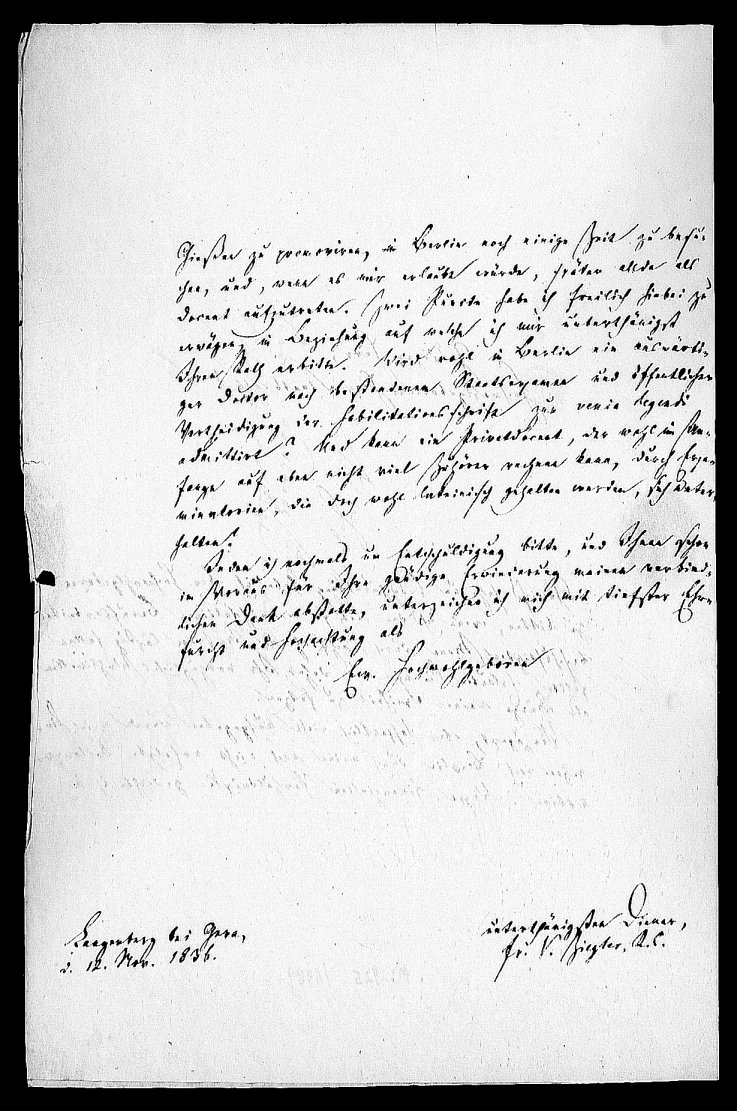 Gießen zu promoviren, in Berlin noch einige Zeit zu besu-
chen, und, wenn es mir erlaubt würde, später allda als
Docent aufzutreten. Zwei Puncte habe ich freilich hiebei zu
erwägen, in Beziehung auf welche ich mir unterthänigst
Ihren Rath erbitte. Wird wohl in Berlin ein auswärti-
ger Doctor nach bestandenem Staatsexamen und öffentlicher
Vertheidigung der Habilitationsschrift zur venia legendi
admittirt? Und kann ein Privatdocent, der wohl im An-
fange auf eben nicht viel Zuhörer rechnen kann, durch Exa-
minatorien, die doch wohl lateinisch gehalten werden, sich unter-
halten?
Indem ich nochmals um Entschuldigung bitte, und Ihnen schon
im Voraus für Ihre gnädige Erwiederung meinen verbind-
lichen Dank abstatte, unterzeichne ich mich mit tiefster Ehr-
furcht und Hochachtung als
Ew. Hochwohlgeboren
unterthänigsten Diener,
Fr. V. Ziegler, R. C.
Langenberg bei Gera,
d. 12. Nov. 1836.